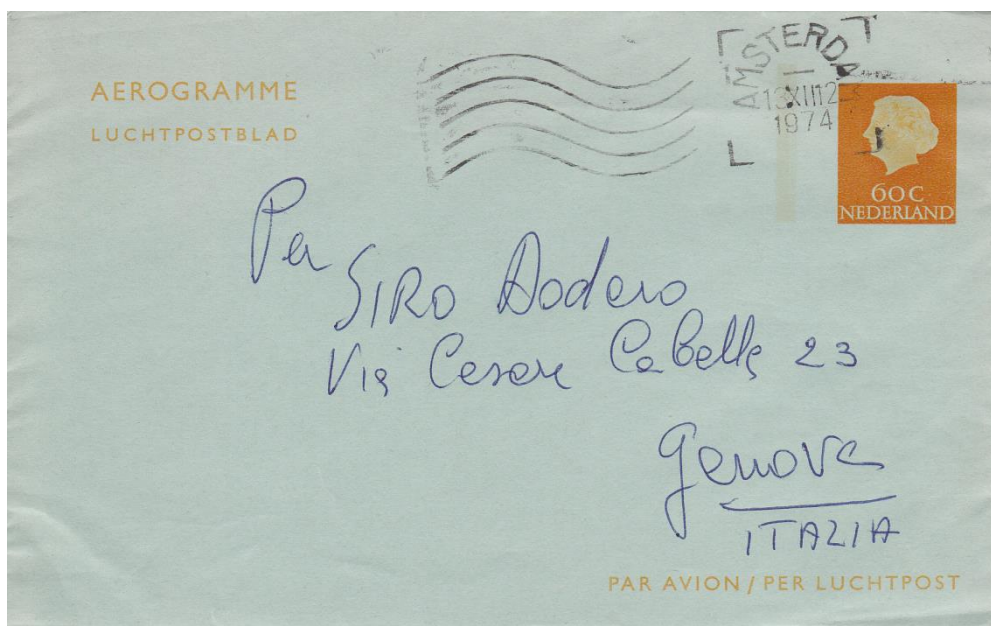 AEROGRAMME
LUCHTPOSTBLAD
AMSTERDA
1
13XII12
1974
60C
NEDERLAND
Per
SIRO Dodero
Via Cesare Cabella 23
Genova
ITALIA
PAR AVION / PER LUCHTPOST